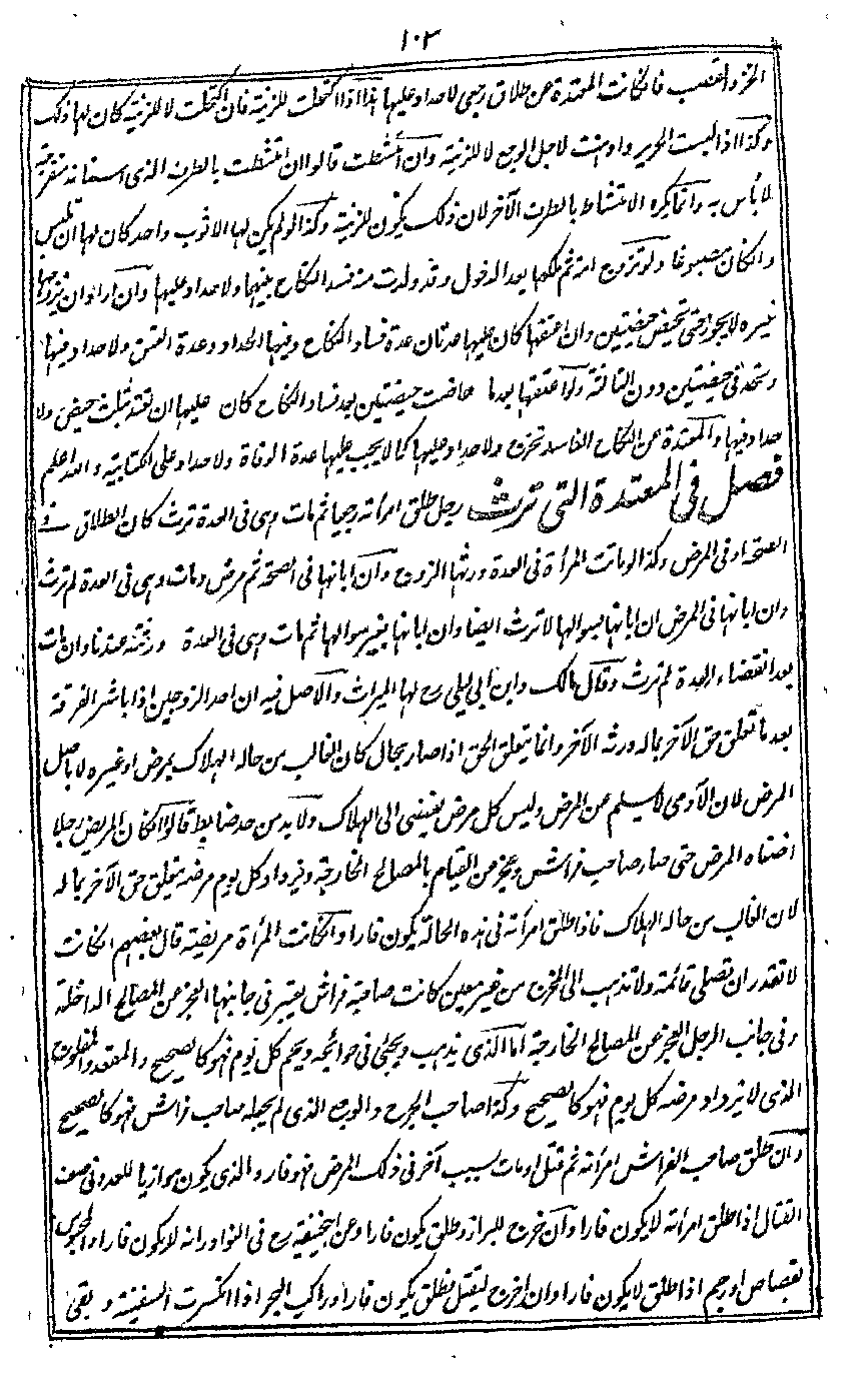 ١٠٣
الخز والقصب فان كانت المعتدة عن طلاق رجعي لا حداد عليها هذا اذا اكتحلت للزينة فان اكتحلت لا للزينة كان لها ذلك
وكذا اذا لبست الحرير وادهنت لاجل الوجع لا للزينة وان امتشطت قالوا ان امتشطت بالطرف الذي اسنانه منفرجة
لا بأس به وانما يكره الامتشاط بالطرف الآخر لان ذلك يكون للزينة وكذا لو لم يكن لها الا ثوب واحد كان لها ان تلبس
وان كان مصبوغا ولو تزوج امة ثم ملكها بعد الدخول وقد ولدت منه فسد النكاح بينهما ولا حداد عليها وان اراد ان يزوجها
غيره لا يجوز حتى تحيض حيضتين وان اعتقها كان عليها عدتان عدة فساد النكاح وفيها الحداد وعدة العتق ولا حداد فيها
وتحد في حيضتين دون الثالثة ولو اعتقها بعدما حاضت حيضتين بعد فساد النكاح كان عليها ان تعتد بثلث حيض ولا
حداد فيها والمعتدة عن النكاح الفاسد تخرج ولا حداد عليها كما لا يجب عليها عدة الوفاة ولا حداد على الكتابية والله اعلم
فصل في المعتدة التي ترث رجل طلق امرأته رجعيا ثم مات وهي في العدة ترث كان الطلاق في
الصحة او في المرض وكذا لو ماتت المرأة في العدة ورثها الزوج وان ابانها في الصحة ثم مرض ومات وهي في العدة لم ترث
وان ابانها في المرض ان ابانها بسوالها لا ترث ايضا وان ابانها بغير سوالها ثم مات وهي في العدة ورثته عندنا وان مات
بعد انقضاء العدة لم ترث وقال مالك وابن ابي ليلى رح لها الميراث والاصل فيه ان احد الزوجين اذا باشر الفرقة
بعد ما تعلق حق الآخر بماله ورثه الآخر وانما يتعلق الحق اذا صار بحال كان الغالب من حاله الهلاك بمرض او غيره لا باصل
المرض لان الآدمي لا يسلم عن المرض وليس كل مرض يفضي الى الهلاك ولا بد من حد ضابط قالوا ان كان المريض رجلا
اضناه المرض حتى صار صاحب فراش وعجز عن القيام بالمصالح الخارجة ويزداد كل يوم مرضه يتعلق حق الآخر بماله
لان الغالب من حاله الهلاك فاذا طلق امرأته في هذه الحالة يكون فارا وان كانت المرأة مريضة قال بعضهم ان كانت
لا تقدر ان تصلي قائمة ولا تذهب الى المخرج من غير معين كانت صاحبة فراش يعتبر في جانبها العجز عن المصالح الداخلة
وفي جانب الرجل العجز عن المصالح الخارجة اما الذي يذهب ويجئ في حوائجه ويحم كل يوم فهو كالصحيح والمقعد والمفلوج
الذي لا يزداد مرضه كل يوم فهو كالصحيح وكذا صاحب الجرح والوجع الذي لم يجعله صاحب فراش فهو كالصحيح
وان طلق صاحب الفراش امرأته ثم قتل او مات بسبب آخر في ذلك المرض فهو فار والذي يكون موازيا للعدو في صف
القتال اذا طلق امرأته لا يكون فارا وان خرج للبراز وطلق يكون فارا وعن ابيحنيفة رح في النوادر انه لا يكون فارا والمحبوس
بقصاص او رجم اذا طلق لا يكون فارا وان اخرج ليقتل فطلق يكون فارا وراكب البحر اذا انكسرت السفينة و بقي